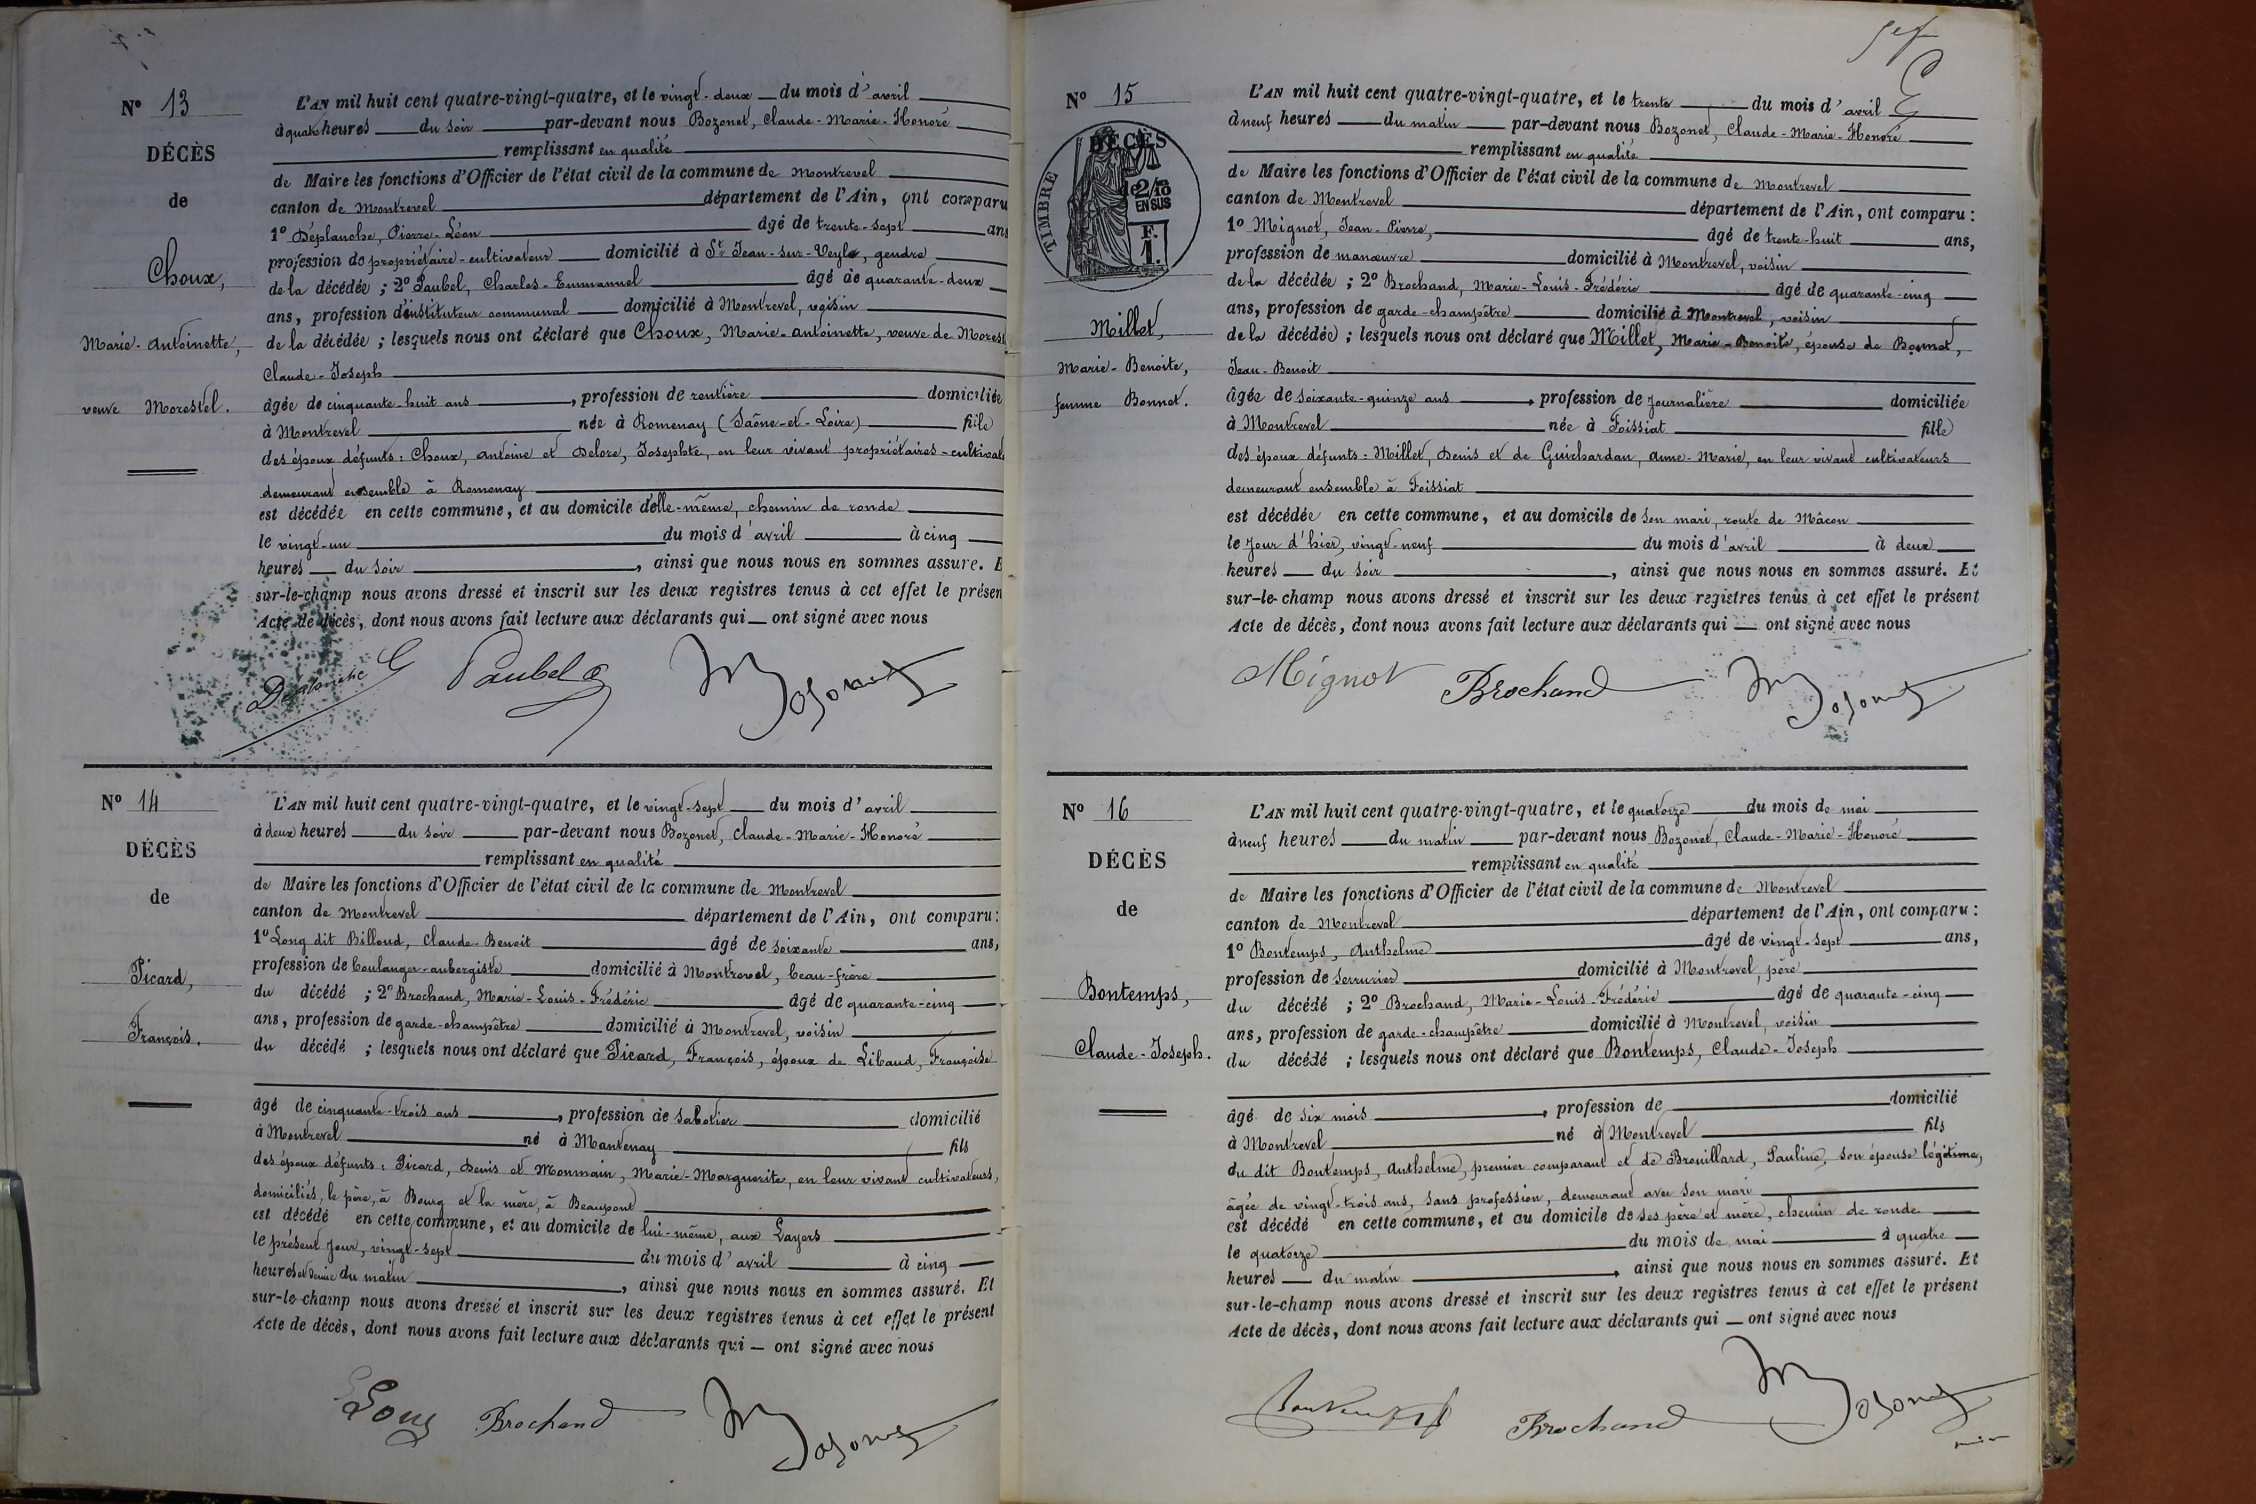 Nº 13
DÉCÈS
de
Choux,
Marie-Antoinette,
veuve Morestel.
L'AN mil huit cent quatre-vingt-quatre, et le vingt-deux du mois d'avril
à quatre heures du soir par-devant nous Bozonet, Claude-Marie-Honoré
remplissant en qualité
de Maire les fonctions d'Officier de l'état civil de la commune de Montrevel
canton de Montrevel département de l'Ain, ont comparu
1º Déplanche, Pierre-Léon âgé de trente-sept ans
profession de propriétaire-cultivateur domicilié à St Jean-sur-Veyle, gendre
de la décédée ; 2º Paubel, Charles-Emmanuel âgé de quarante-deux
ans, profession d'instituteur communal domicilié à Montrevel, voisin
de la décédée ; lesquels nous ont déclaré que Choux, Marie-Antoinette, veuve de Morest
Claude-Joseph
âgée de cinquante-huit ans, profession de rentière domiciliée
à Montrevel née à Romenay (Saône-et-Loire) fille
des époux défunts : Choux, Antoine et Delore, Josephte, en leur vivant propriétaires-cultivat
demeurant ensemble à Romenay
est décédée en cette commune, et au domicile d'elle-même, chemin de ronde
le vingt-un du mois d'avril à cinq
heures du soir, ainsi que nous nous en sommes assuré. E
sur-le-champ nous avons dressé et inscrit sur les deux registres tenus à cet effet le présen
Acte de décès, dont nous avons fait lecture aux déclarants qui ont signé avec nous
Deplanche Paubel Bozonet
Nº 14
DÉCÈS
de
Picard,
François.
L'AN mil huit cent quatre-vingt-quatre, et le vingt-sept du mois d'avril
à deux heures du soir par-devant nous Bozonet, Claude-Marie-Honoré
remplissant en qualité
de Maire les fonctions d'Officier de l'état civil de la commune de Montrevel
canton de Montrevel département de l'Ain, ont comparu :
1º Long dit Billoud, Claude-Benoit âgé de soixante ans,
profession de boulanger-aubergiste domicilié à Montrevel, beau-frère
du décédé ; 2º Brochand, Marie-Louis-Frédéric âgé de quarante-cinq
ans, profession de garde-champêtre domicilié à Montrevel, voisin
du décédé ; lesquels nous ont déclaré que Picard, François, époux de Libaud, Françoise
âgé de cinquante-trois ans, profession de sabotier domicilié
à Montrevel né à Mantenay fils
des époux défunts : Picard, Denis et Monmain, Marie-Marguerite, en leur vivant cultivateurs,
domiciliés, le père, à Bourg et la mère, à Beaupont
est décédé en cette commune, et au domicile de lui-même, aux Layers
le présent jour, vingt-sept du mois d'avril à cinq
heures et demie du matin, ainsi que nous nous en sommes assuré. Et
sur-le-champ nous avons dressé et inscrit sur les deux registres tenus à cet effet le présent
Acte de décès, dont nous avons fait lecture aux déclarants qui ont signé avec nous
Long Brochand Bozonet
Nº 15
TIMBRE
DÉCÈS
de 2/10 EN SUS
F. 1.
Millet,
Marie-Benoite,
femme Bonnet.
L'AN mil huit cent quatre-vingt-quatre, et le trente du mois d'avril
à neuf heures du matin par-devant nous Bozonet, Claude-Marie-Honoré
remplissant en qualité
de Maire les fonctions d'Officier de l'état civil de la commune de Montrevel
canton de Montrevel département de l'Ain, ont comparu :
1º Mignot, Jean-Pierre, âgé de trente-huit ans,
profession de manœuvre domicilié à Montrevel, voisin
de la décédée ; 2º Brochand, Marie-Louis-Frédéric âgé de quarante-cinq
ans, profession de garde-champêtre domicilié à Montrevel, voisin
de la décédée ; lesquels nous ont déclaré que Millet, Marie-Benoite, épouse de Bonnet,
Jean-Benoit
âgée de soixante-quinze ans, profession de journalière domiciliée
à Montrevel née à Foissiat fille
des époux défunts : Millet, Denis et de Guichardan, Anne-Marie, en leur vivant cultivateurs
demeurant ensemble à Foissiat
est décédée en cette commune, et au domicile de son mari, route de Mâcon
le jour d'hier, vingt-neuf du mois d'avril à deux
heures du soir, ainsi que nous nous en sommes assuré. Et
sur-le-champ nous avons dressé et inscrit sur les deux registres tenus à cet effet le présent
Acte de décès, dont nous avons fait lecture aux déclarants qui ont signé avec nous
Mignot Brochand Bozonet
Nº 16
DÉCÈS
de
Bontemps,
Claude-Joseph.
L'AN mil huit cent quatre-vingt-quatre, et le quatorze du mois de mai
à neuf heures du matin par-devant nous Bozonet, Claude-Marie-Honoré
remplissant en qualité
de Maire les fonctions d'Officier de l'état civil de la commune de Montrevel
canton de Montrevel département de l'Ain, ont comparu :
1º Bontemps, Anthelme âgé de vingt-sept ans,
profession de serrurier domicilié à Montrevel, père
du décédé ; 2º Brochand, Marie-Louis-Frédéric âgé de quarante-cinq
ans, profession de garde-champêtre domicilié à Montrevel, voisin
du décédé ; lesquels nous ont déclaré que Bontemps, Claude-Joseph
âgé de six mois, profession de domicilié
à Montrevel né à Montrevel fils
du dit Bontemps, Anthelme, premier comparant et de Brouillard, Pauline, son épouse légitime,
âgée de vingt-trois ans, sans profession, demeurant avec son mari
est décédé en cette commune, et au domicile de ses père et mère, chemin de ronde
le quatorze du mois de mai à quatre
heures du matin, ainsi que nous nous en sommes assuré. Et
sur-le-champ nous avons dressé et inscrit sur les deux registres tenus à cet effet le présent
Acte de décès, dont nous avons fait lecture aux déclarants qui ont signé avec nous
Bontemps Brochand Bozonet